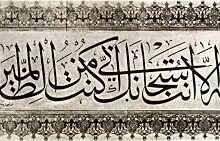 إله إلا أنت سبحانك إني كنت من الظالمين